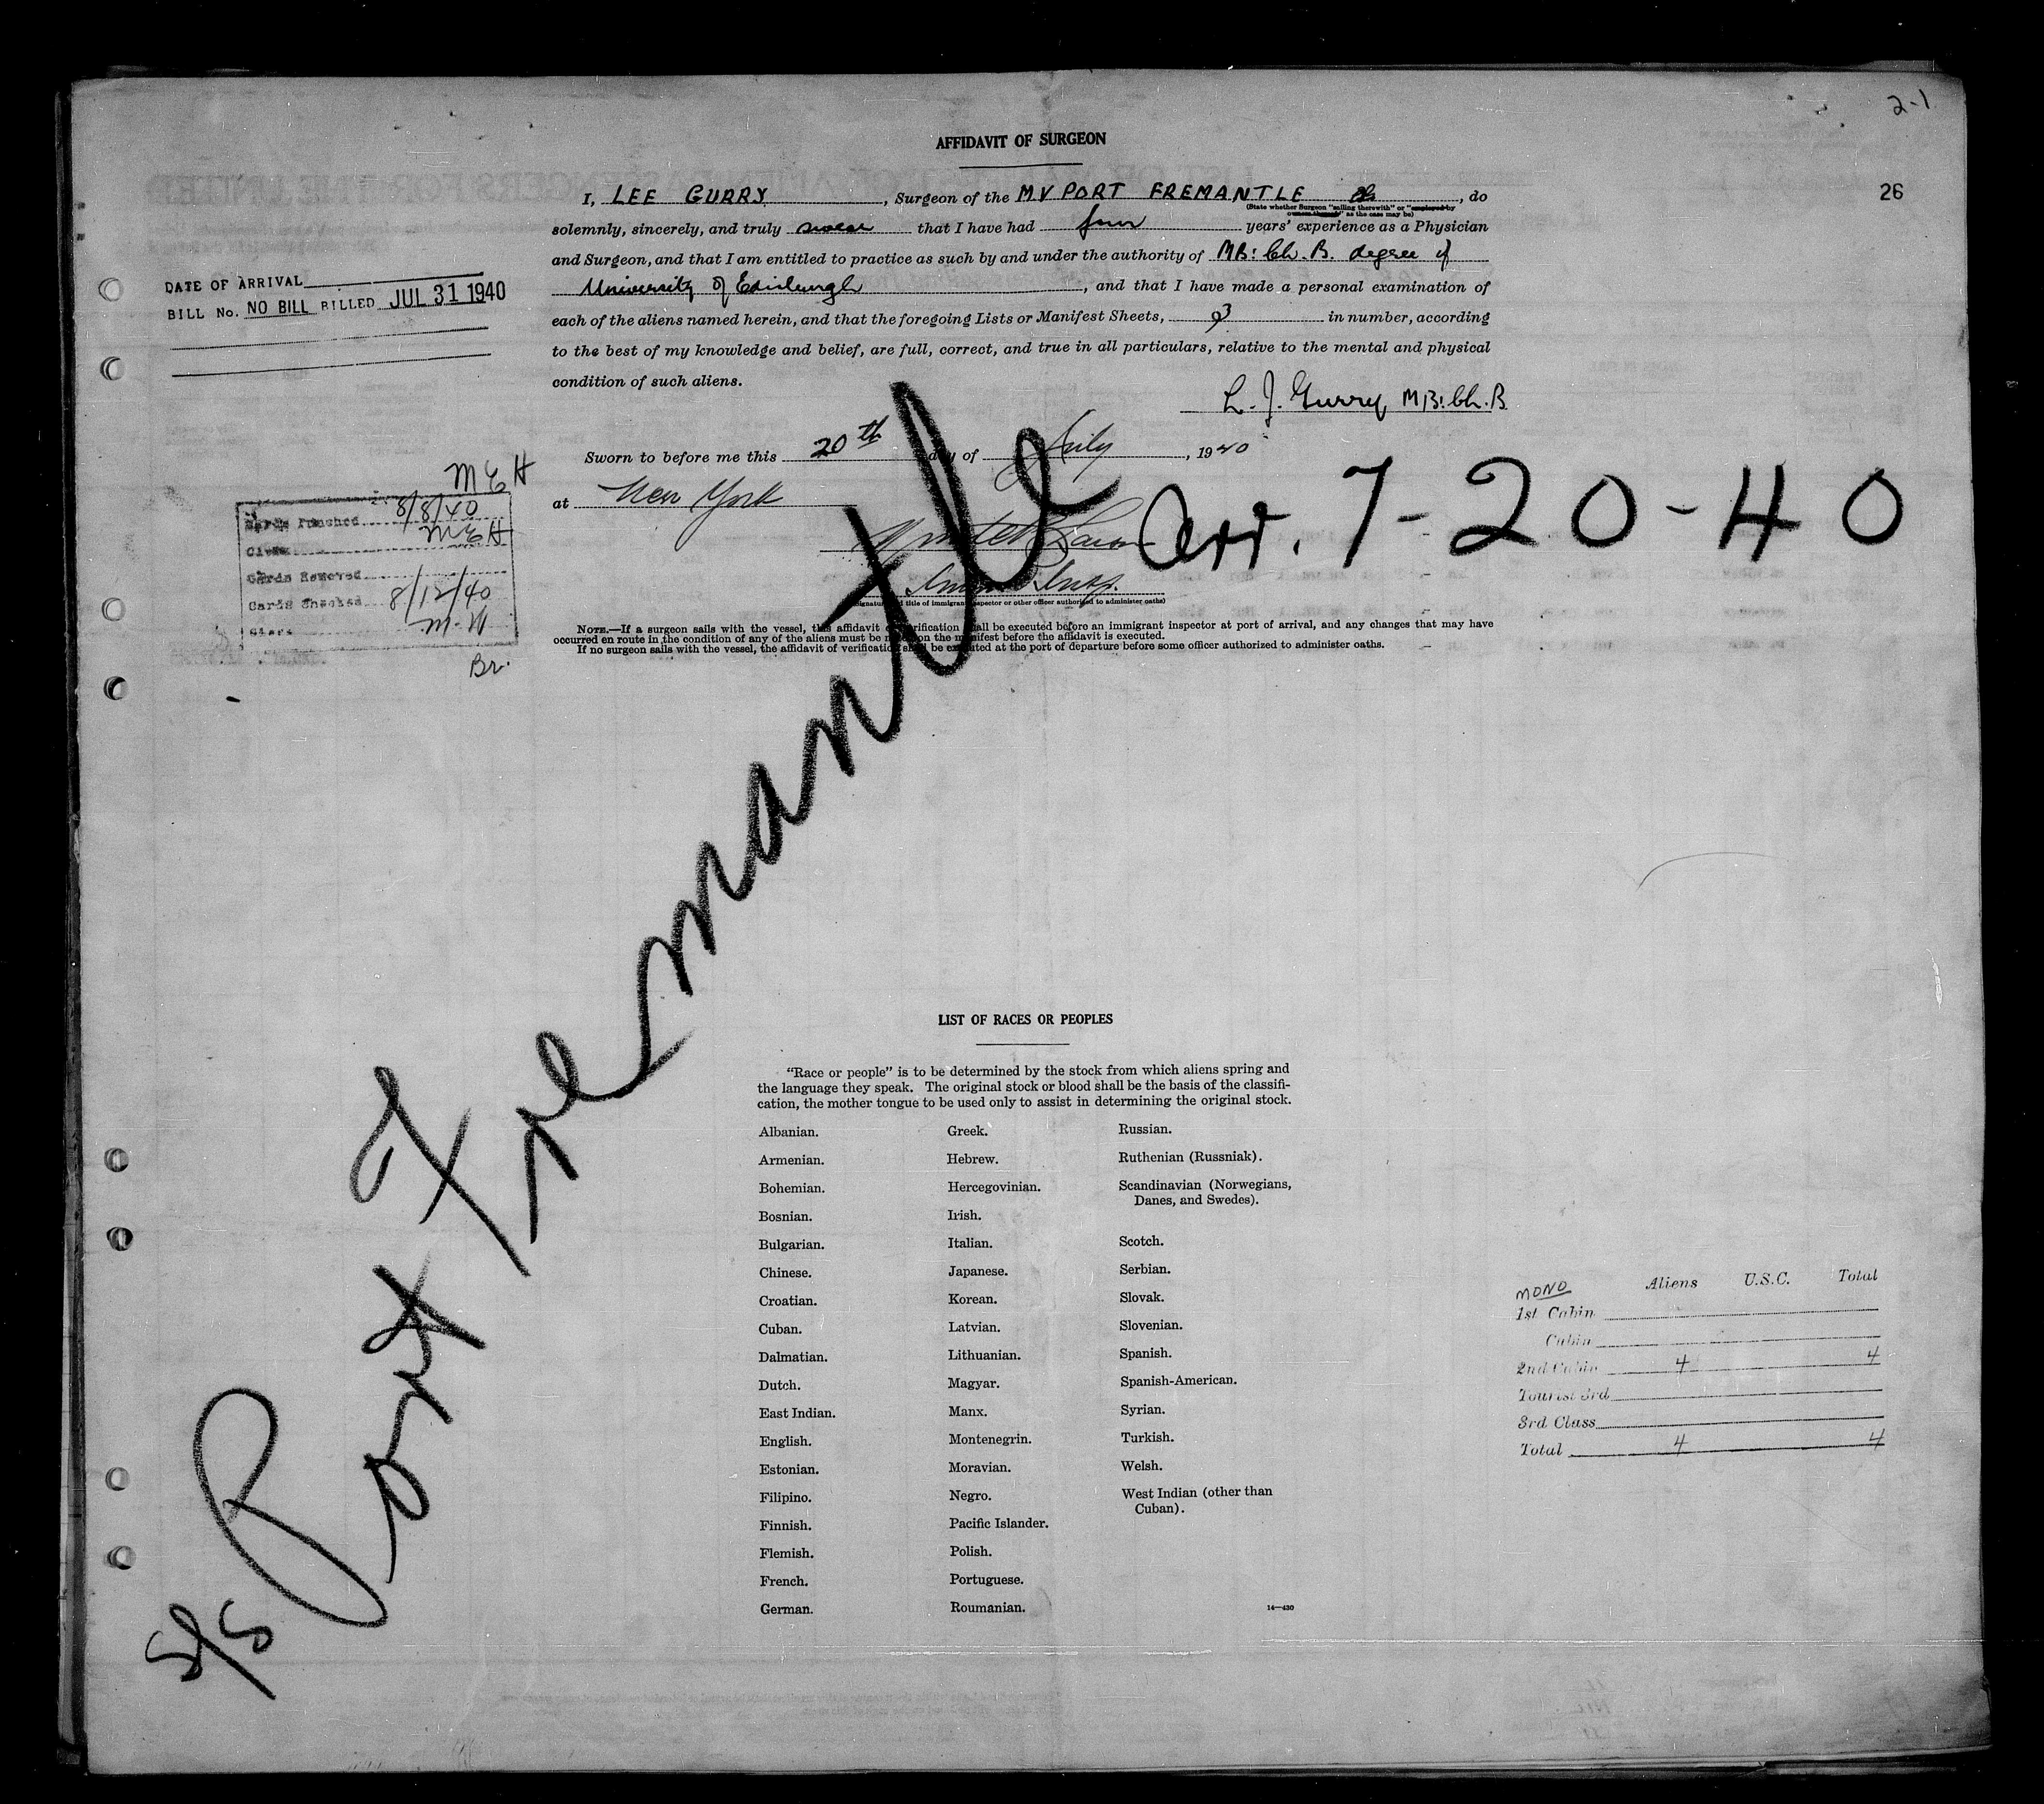 2-1
26
AFFIDAVIT OF SURGEON
I, LEE GURRY, Surgeon of the MV PORT FREMANTLE, do
(State whether Surgeon "sailing therewith" or "employed by
owners thereof" as the case may be)
solemnly, sincerely, and truly swear that I have had years' experience as a Physician
and Surgeon, and that I am entitled to practice as such by and under the authority of MB: Ch. B. degree of
University of Edinburgh, and that I have made a personal examination of
each of the aliens named herein, and that the foregoing Lists or Manifest Sheets, 3 in number, according
to the best of my knowledge and belief, are full, correct, and true in all particulars, relative to the mental and physical
condition of such aliens.
L. J. Gurry MB: Ch. B
DATE OF ARRIVAL
BILL No. NO BILL BILLED JUL 31 1940
Sworn to before me this 20th day of July, 1940
at New York
Immig. Insp.
(Signature and title of immigrant inspector or other officer authorized to administer oaths)
NOTE.—If a surgeon sails with the vessel, this affidavit of verification shall be executed before an immigrant inspector at port of arrival, and any changes that may have
occurred en route in the condition of any of the aliens must be noted on the manifest before the affidavit is executed.
If no surgeon sails with the vessel, the affidavit of verification shall be executed at the port of departure before some officer authorized to administer oaths.
MEH
Cards Punched 8/8/40
Clerk MEH
Cards Removed
Cards Checked 8/12/40
Clerk M.W
Br.
Arr. 7-20-40
S/S Port Fremantle
LIST OF RACES OR PEOPLES
"Race or people" is to be determined by the stock from which aliens spring and
the language they speak. The original stock or blood shall be the basis of the classifi-
cation, the mother tongue to be used only to assist in determining the original stock.
Albanian.
Armenian.
Bohemian.
Bosnian.
Bulgarian.
Chinese.
Croatian.
Cuban.
Dalmatian.
Dutch.
East Indian.
English.
Estonian.
Filipino.
Finnish.
Flemish.
French.
German.
Greek.
Hebrew.
Hercegovinian.
Irish.
Italian.
Japanese.
Korean.
Latvian.
Lithuanian.
Magyar.
Manx.
Montenegrin.
Moravian.
Negro.
Pacific Islander.
Polish.
Portuguese.
Roumanian.
Russian.
Ruthenian (Russniak).
Scandinavian (Norwegians,
Danes, and Swedes).
Scotch.
Serbian.
Slovak.
Slovenian.
Spanish.
Spanish-American.
Syrian.
Turkish.
Welsh.
West Indian (other than
Cuban).
14—430
MONO Aliens U.S.C. Total
1st Cabin
Cabin
2nd Cabin 4 4
Tourist 3rd
3rd Class
Total 4 4